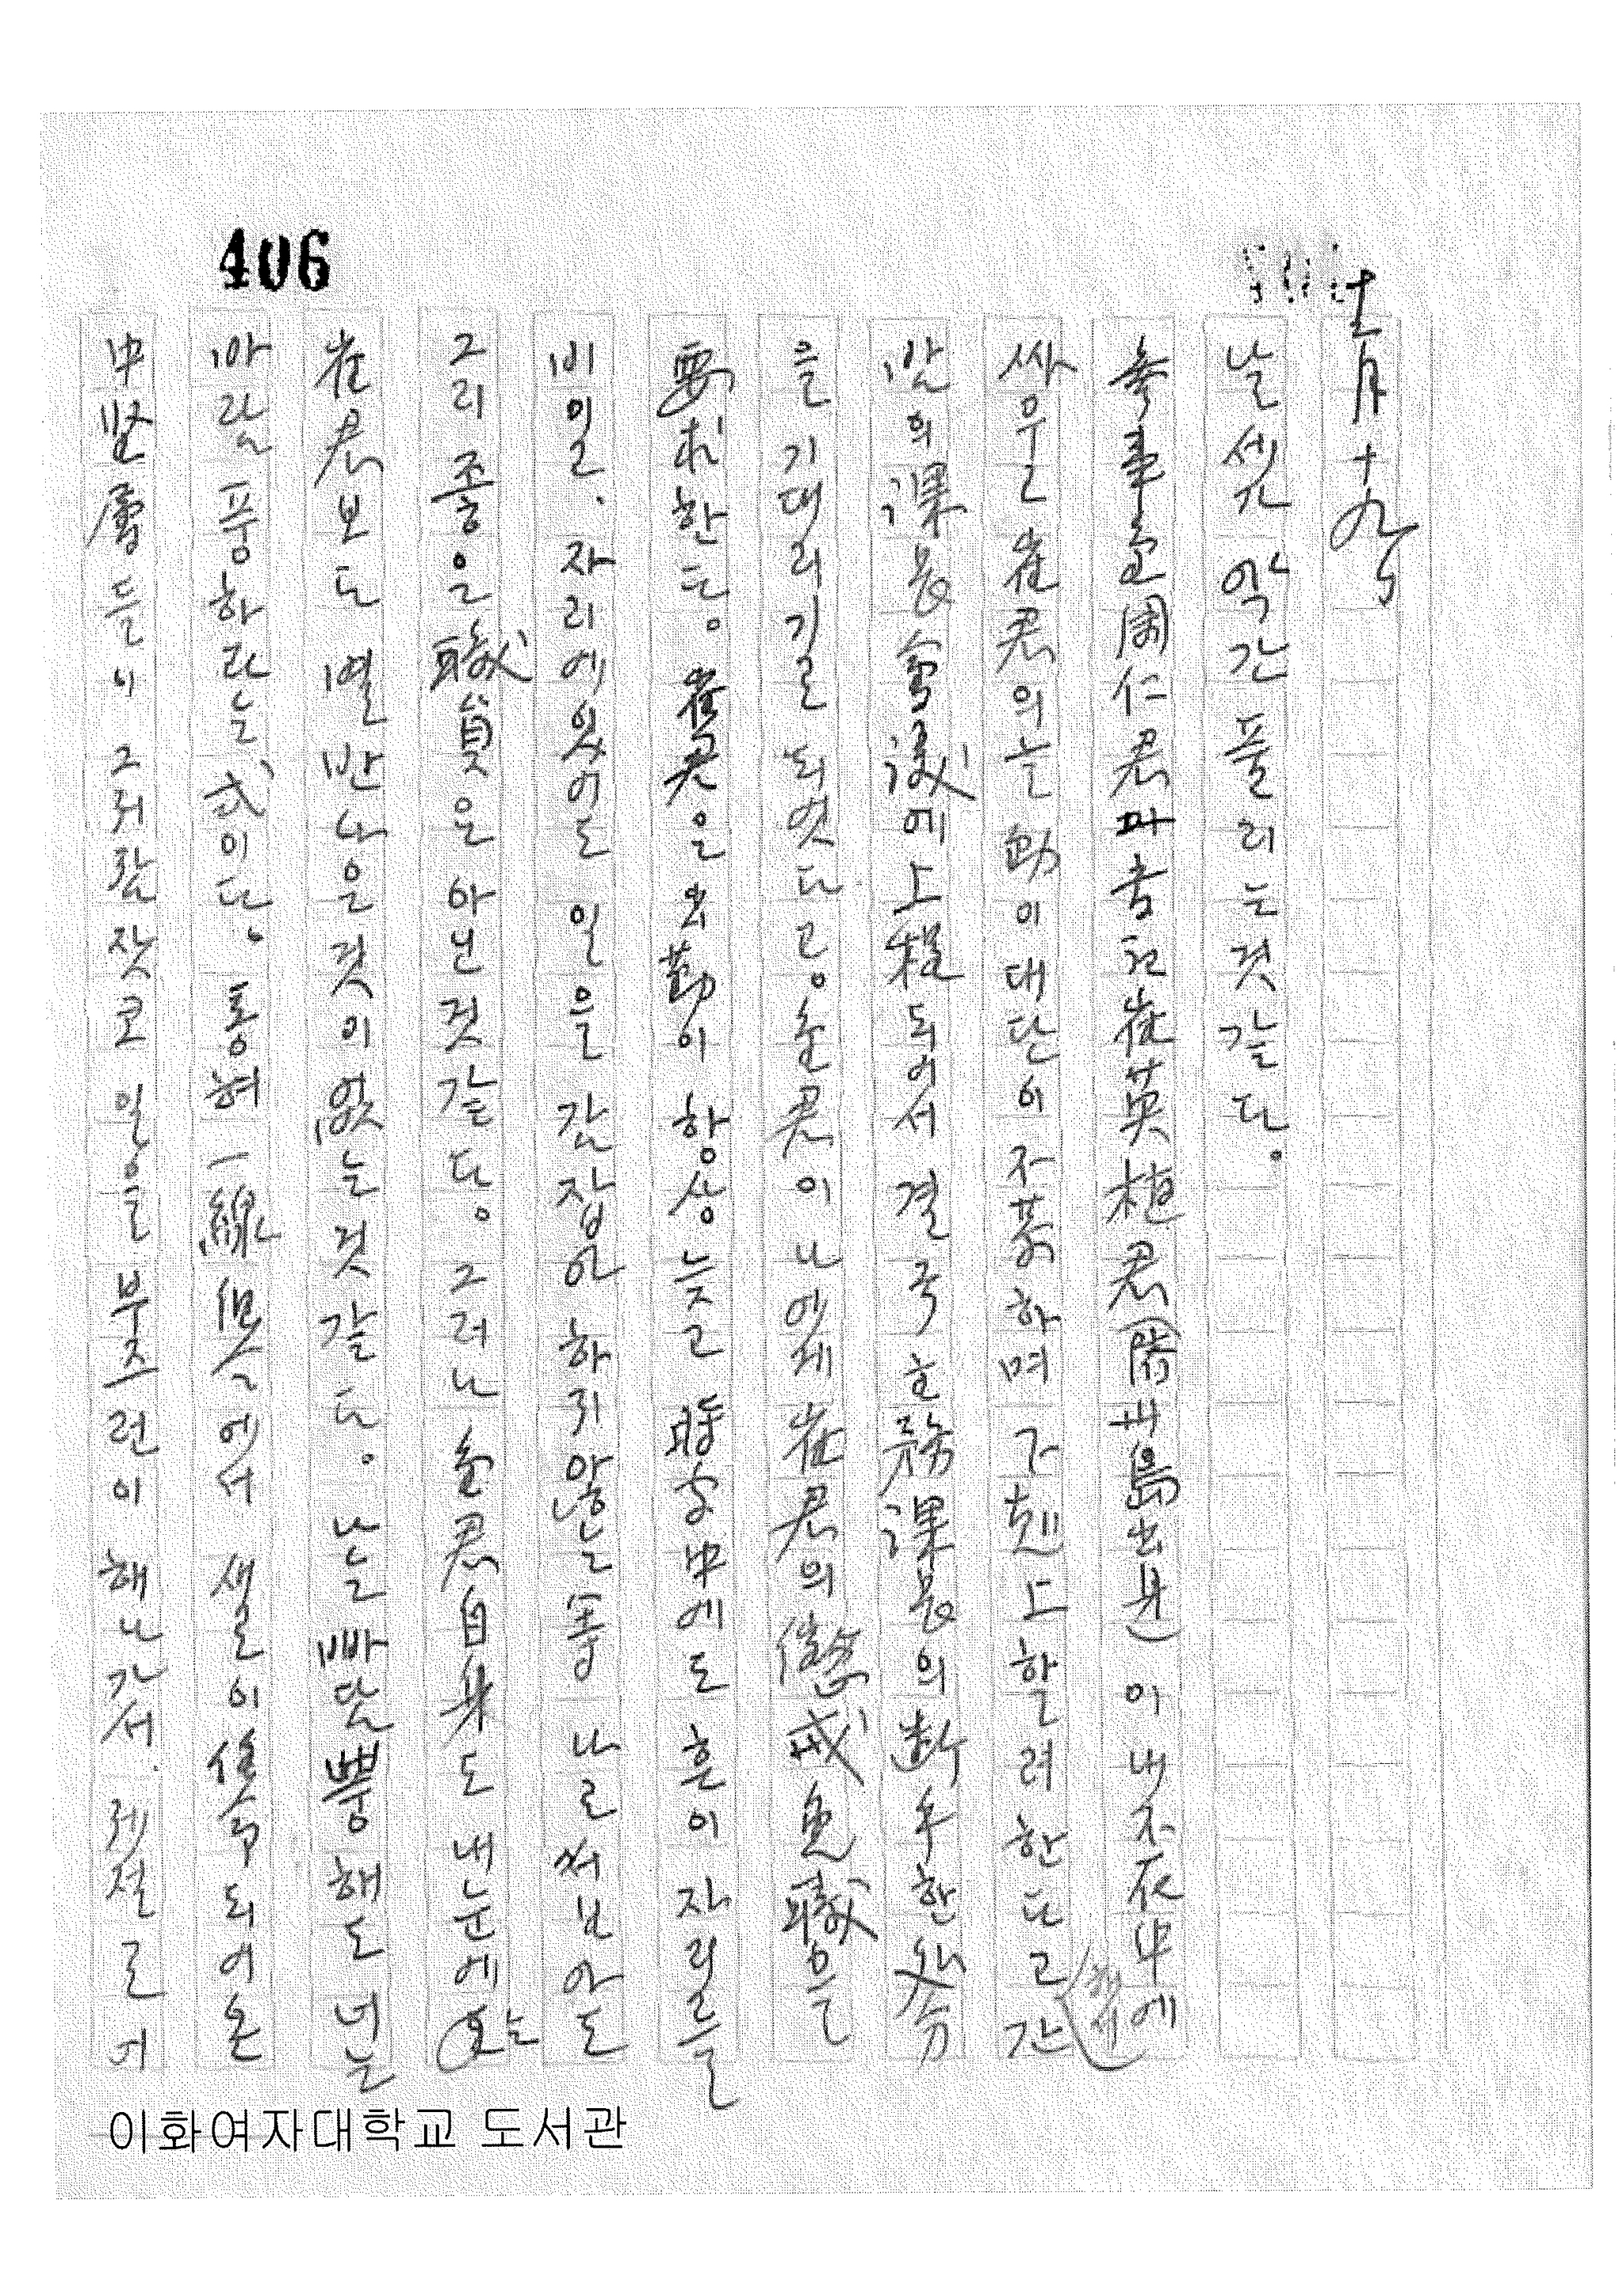 406
十二月十九日
날셋가 약간 풀리는 것 갈다.
參事 金周仁君과 書記 崔英植君(濟州島出身)이 내 不在中에
싸운 崔君의는 動이 대단이 不恭하며 下剋上할려 한다고 간
밤의 課長會議에 上程되여서 결국 主務課長의 斷乎한 処分
을 기대리기로 되엿다고。金君이 나에게 崔君의 懲戒免職을
要求한다。崔君은 出勤이 항상 늣고 時間中에도 흔이 자리를
비일, 자리에 있어도 일을 잡아 하지 않는 等 나로써 보아도
그리 좋은 職員은 아닌 것 갈다。그러나 金君 自身도 내눈에는
崔君보다 열반 나을 것이 없는 것 갈다。나는 빠담뿡해도 너는
바람풍하라는 式이다。통혀 一線 에서 생일이 되여 온
中堅層들이 그저 잠잣코 일을 부즈런이 해나가서. 저절로 머
이화여자대학교 도서관